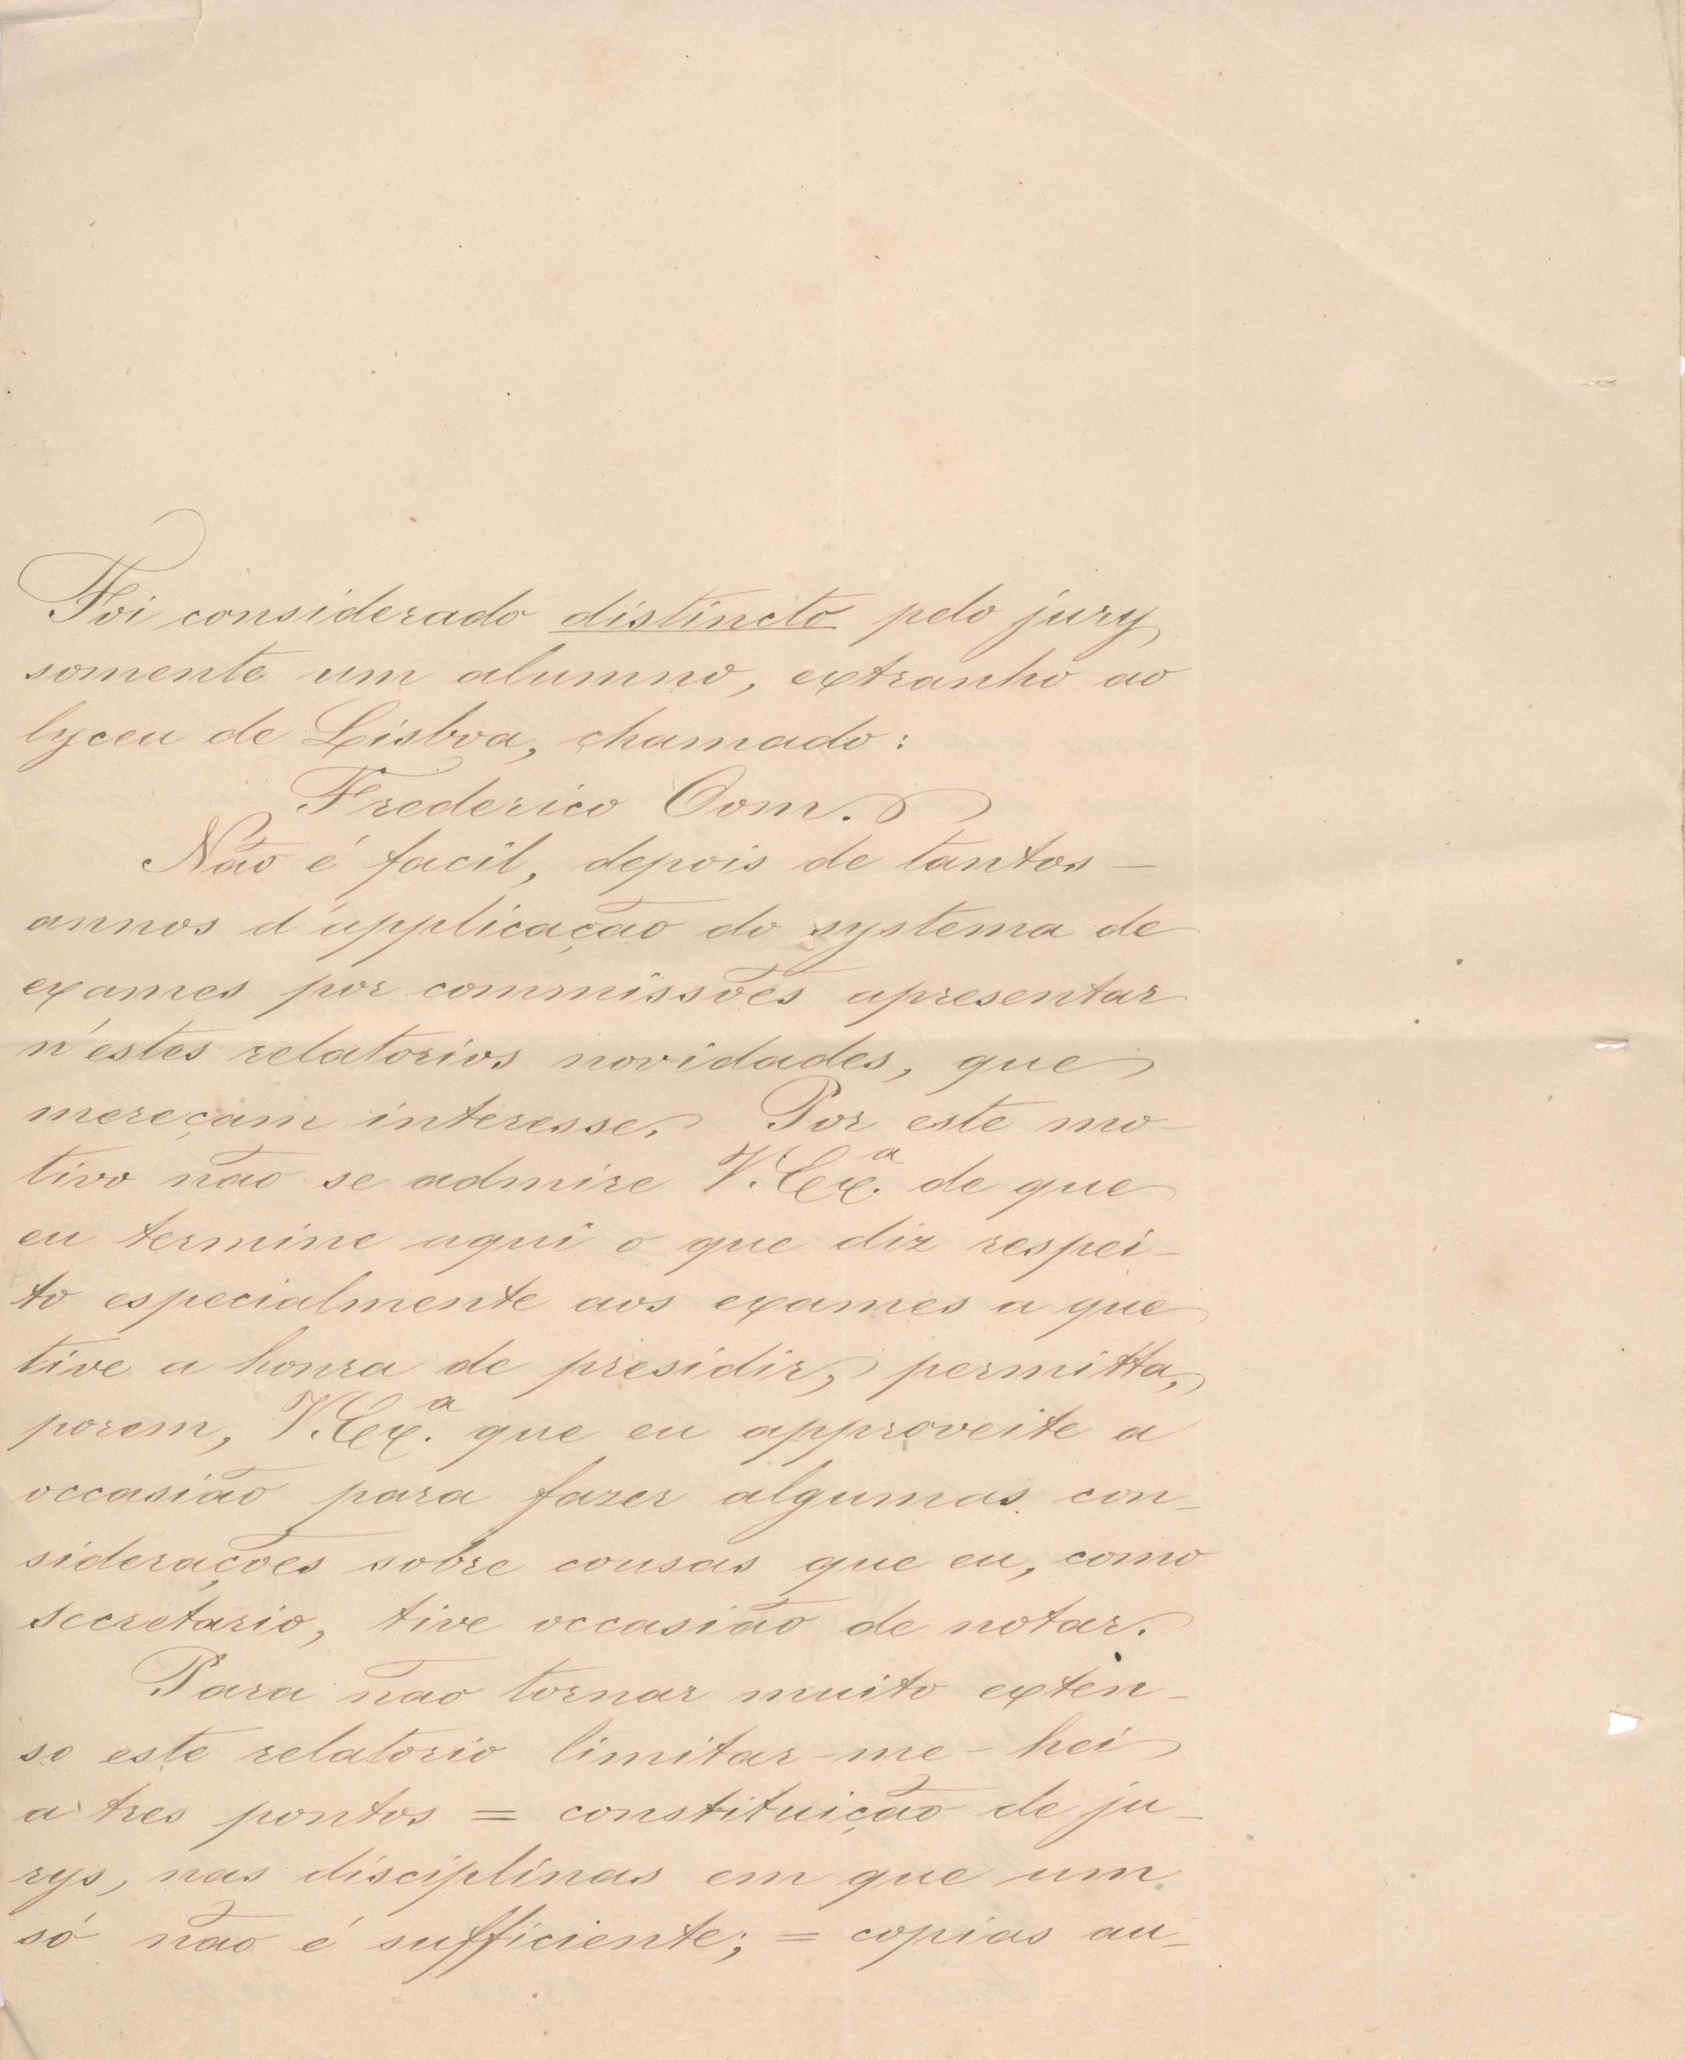 Foi considerado distincto pelo jury
somente um alumno, extranho ao
lyceu de Lisboa, chamado:
Frederico Oom.
Não é facil, depois de tantos –
annos d'applicação do systema de
exames por commissões apresentar
n'estes relatorios novidades, que
mereçam interesse. Por este mo-
tivo não se admire V. Ex.ª de que
eu termine aqui o que diz respei-
to especialmente aos exames a que
tive a honra de presidir; permitta,
porem, V. Ex.ª que eu approveite a
occasião para fazer algumas con-
siderações sobre cousas que eu, como
secretario, tive occasião de notar.
Para não tornar muito exten-
so este relatorio limitar-me-hei
a tres pontos = constituição de ju-
rys, nas disciplinas em que um
só não é sufficiente; = copias au-